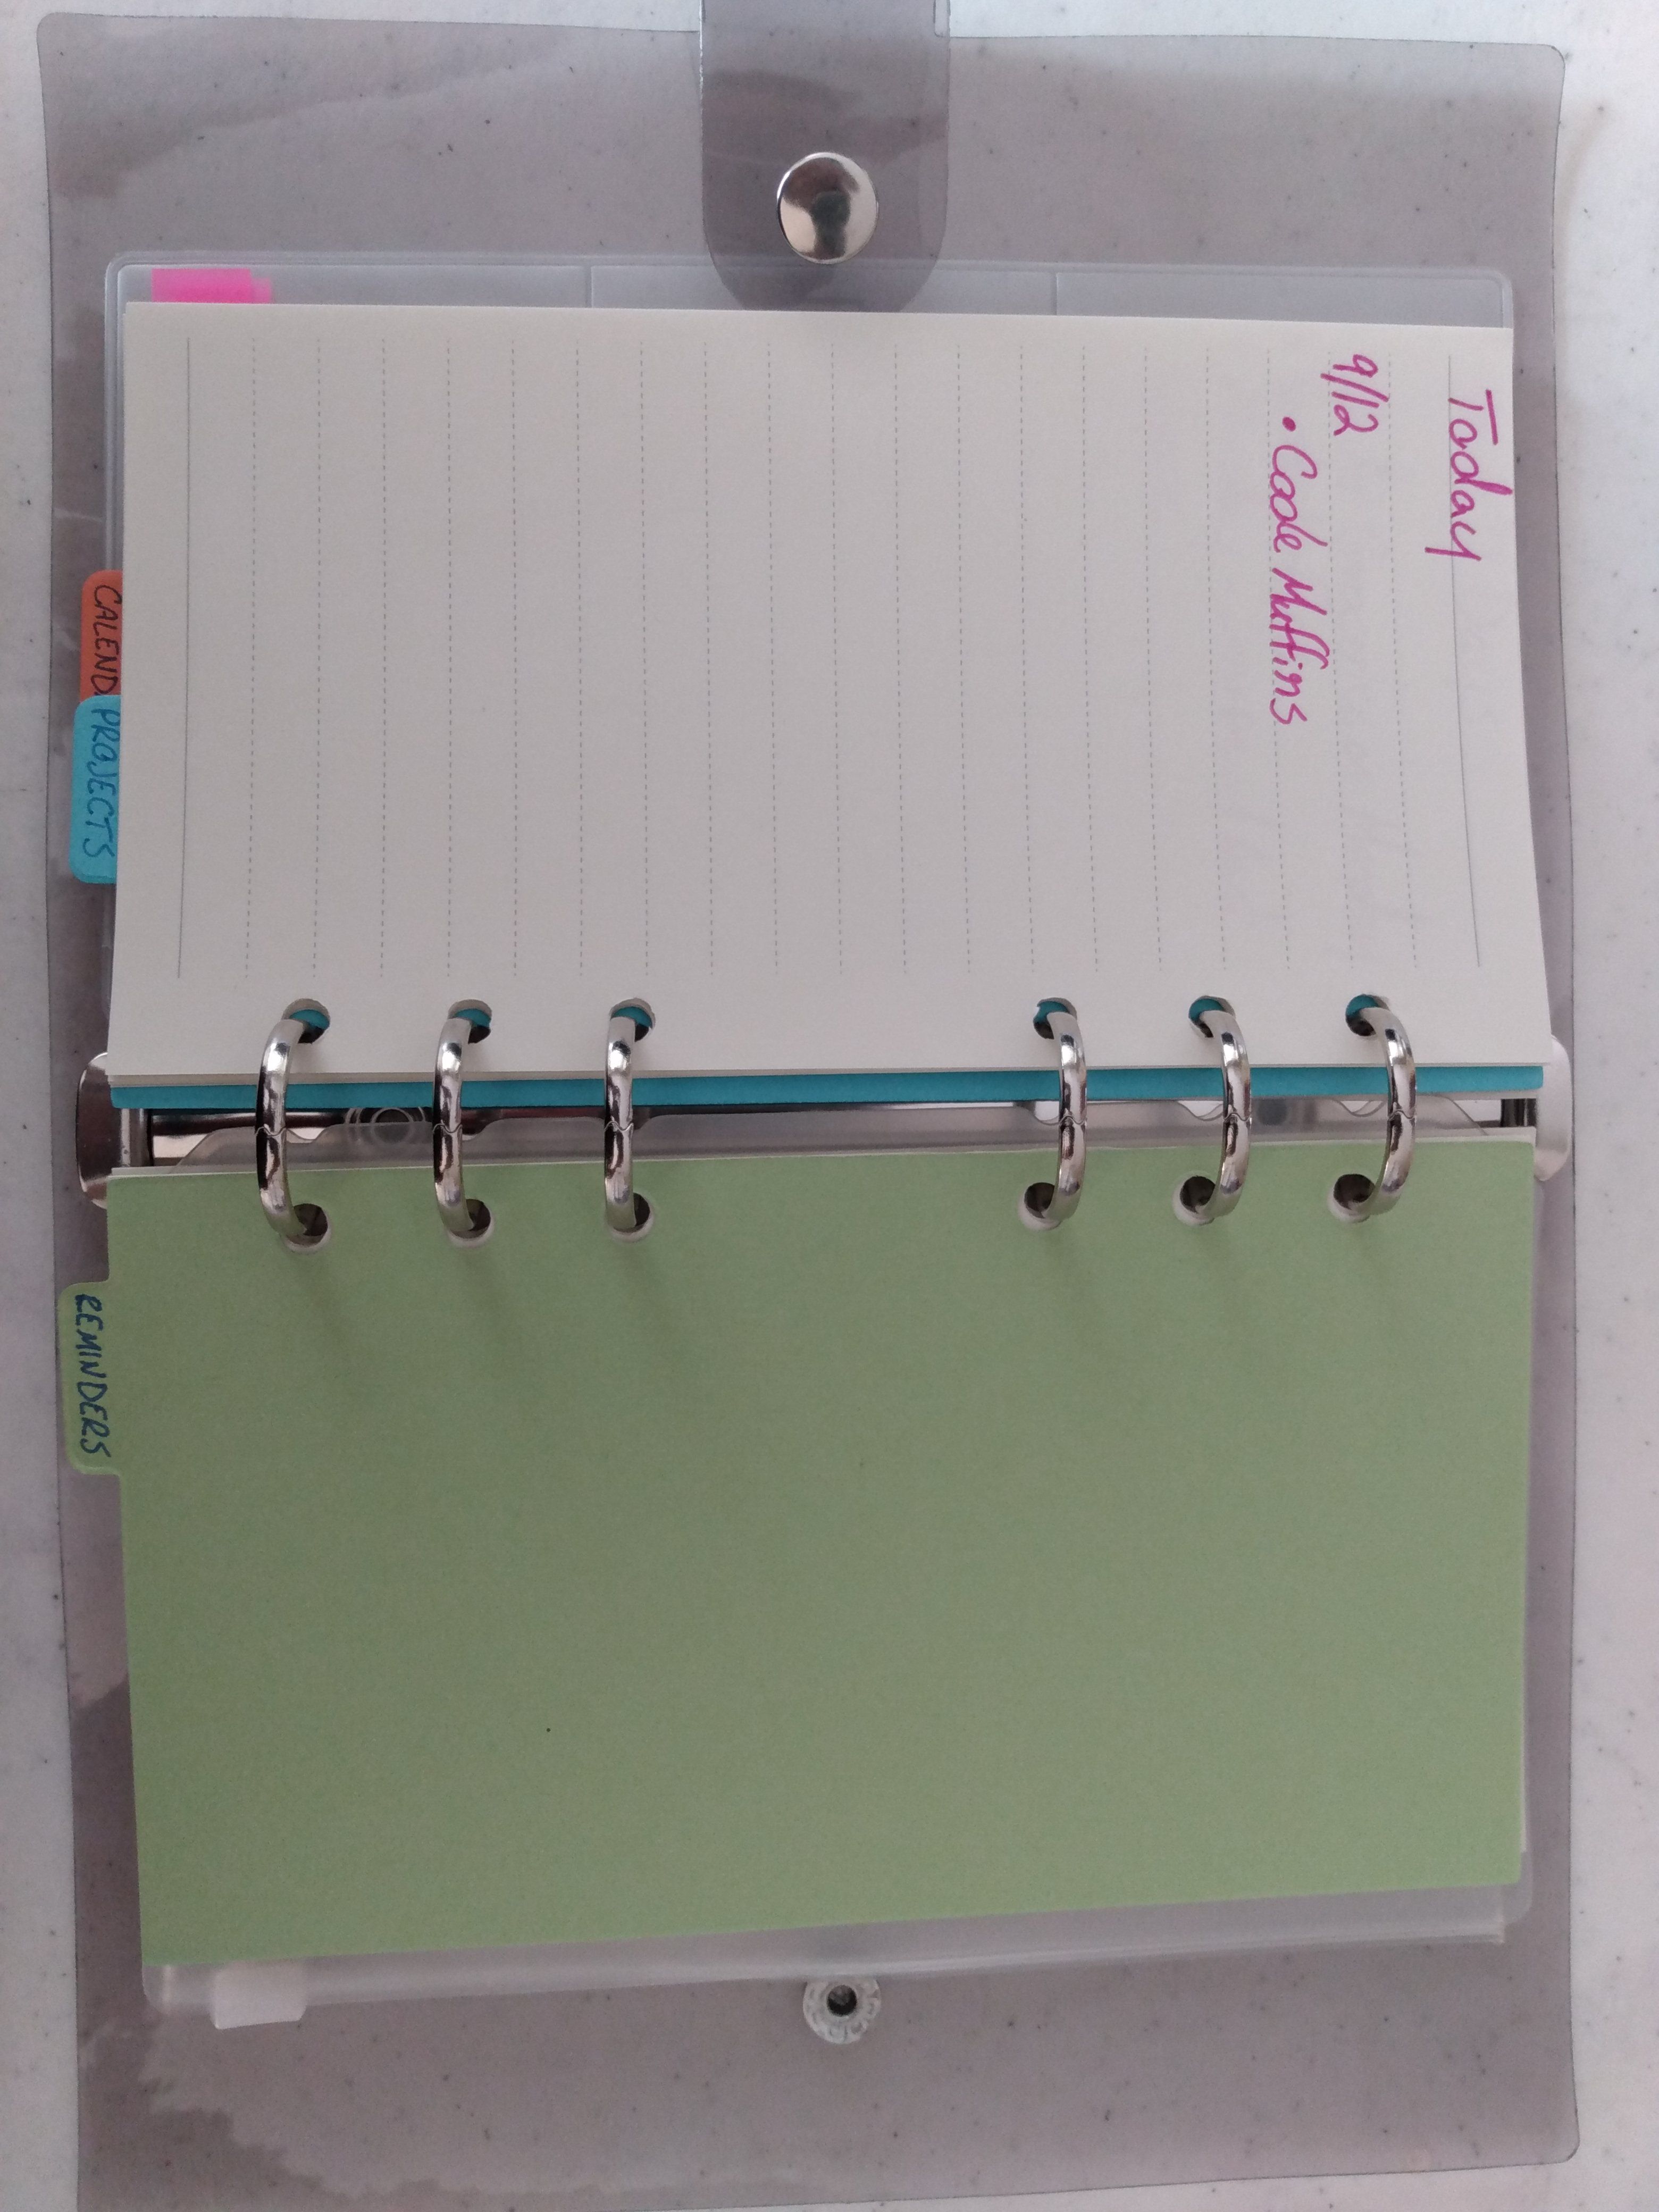 Today
9/12
• Cook Muffins
CALEND
PROJECTS
REMINDERS